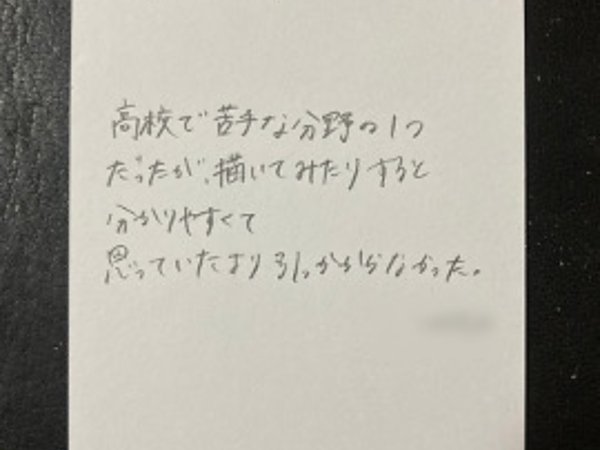 高校で苦手な分野の1つ
だったが、描いてみたりすると
分かりやすくて
思っていたより引っかからなかった。